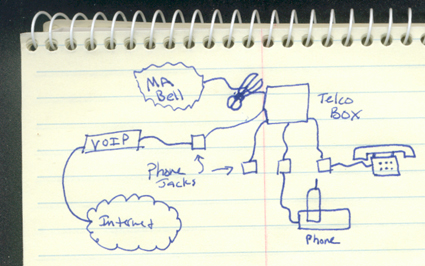 MA
Bell
Telco
BOX
VOIP
Phone
Jacks
Internet
Phone